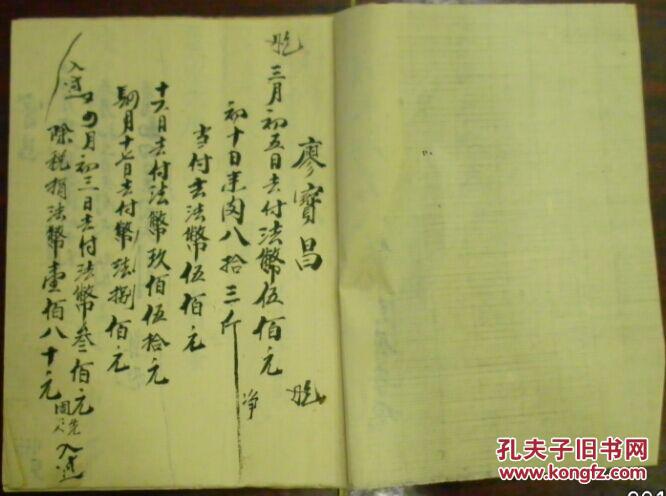 廖寳昌
三月初五日去付法幣伍佰元
初十日来肉八拾三斤 净
当付去法幣伍佰元
十六日去付法幣玖佰伍拾元
月十七日去付幣法捌佰元
四月初三日去付法幣叁佰元
除税捐法幣壹佰八十元
入
孔夫子旧书网
www.kongfz.com